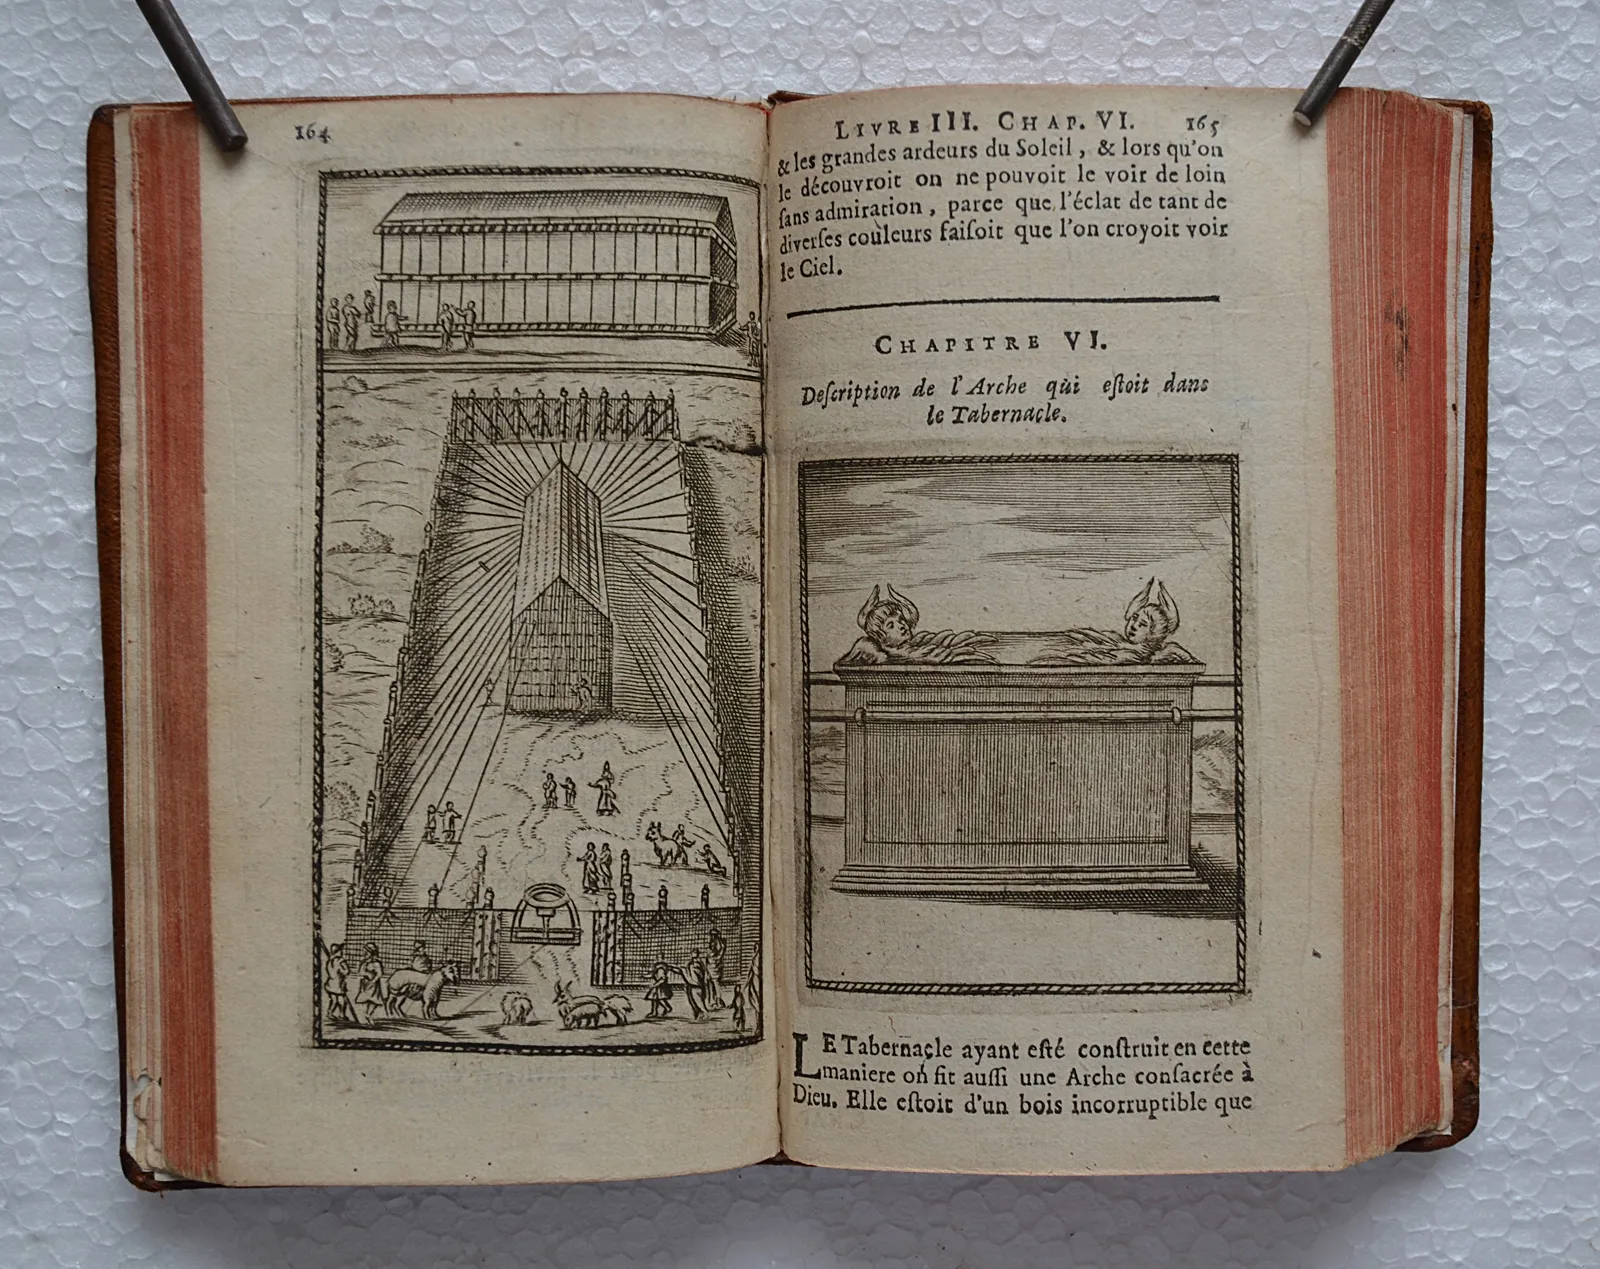 164
LIVRE III. CHAP. VI. 165
& les grandes ardeurs du Soleil, & lors qu'on
le découvroit on ne pouvoit le voir de loin
ſans admiration, parce que l'éclat de tant de
diverſes couleurs faiſoit que l'on croyoit voir
le Ciel.
CHAPITRE VI.
Deſcription de l'Arche qui eſtoit dans
le Tabernacle.
LE Tabernacle ayant eſté conſtruit en cette
maniere on fit auſſi une Arche conſacrée à
Dieu. Elle eſtoit d'un bois incorruptible que